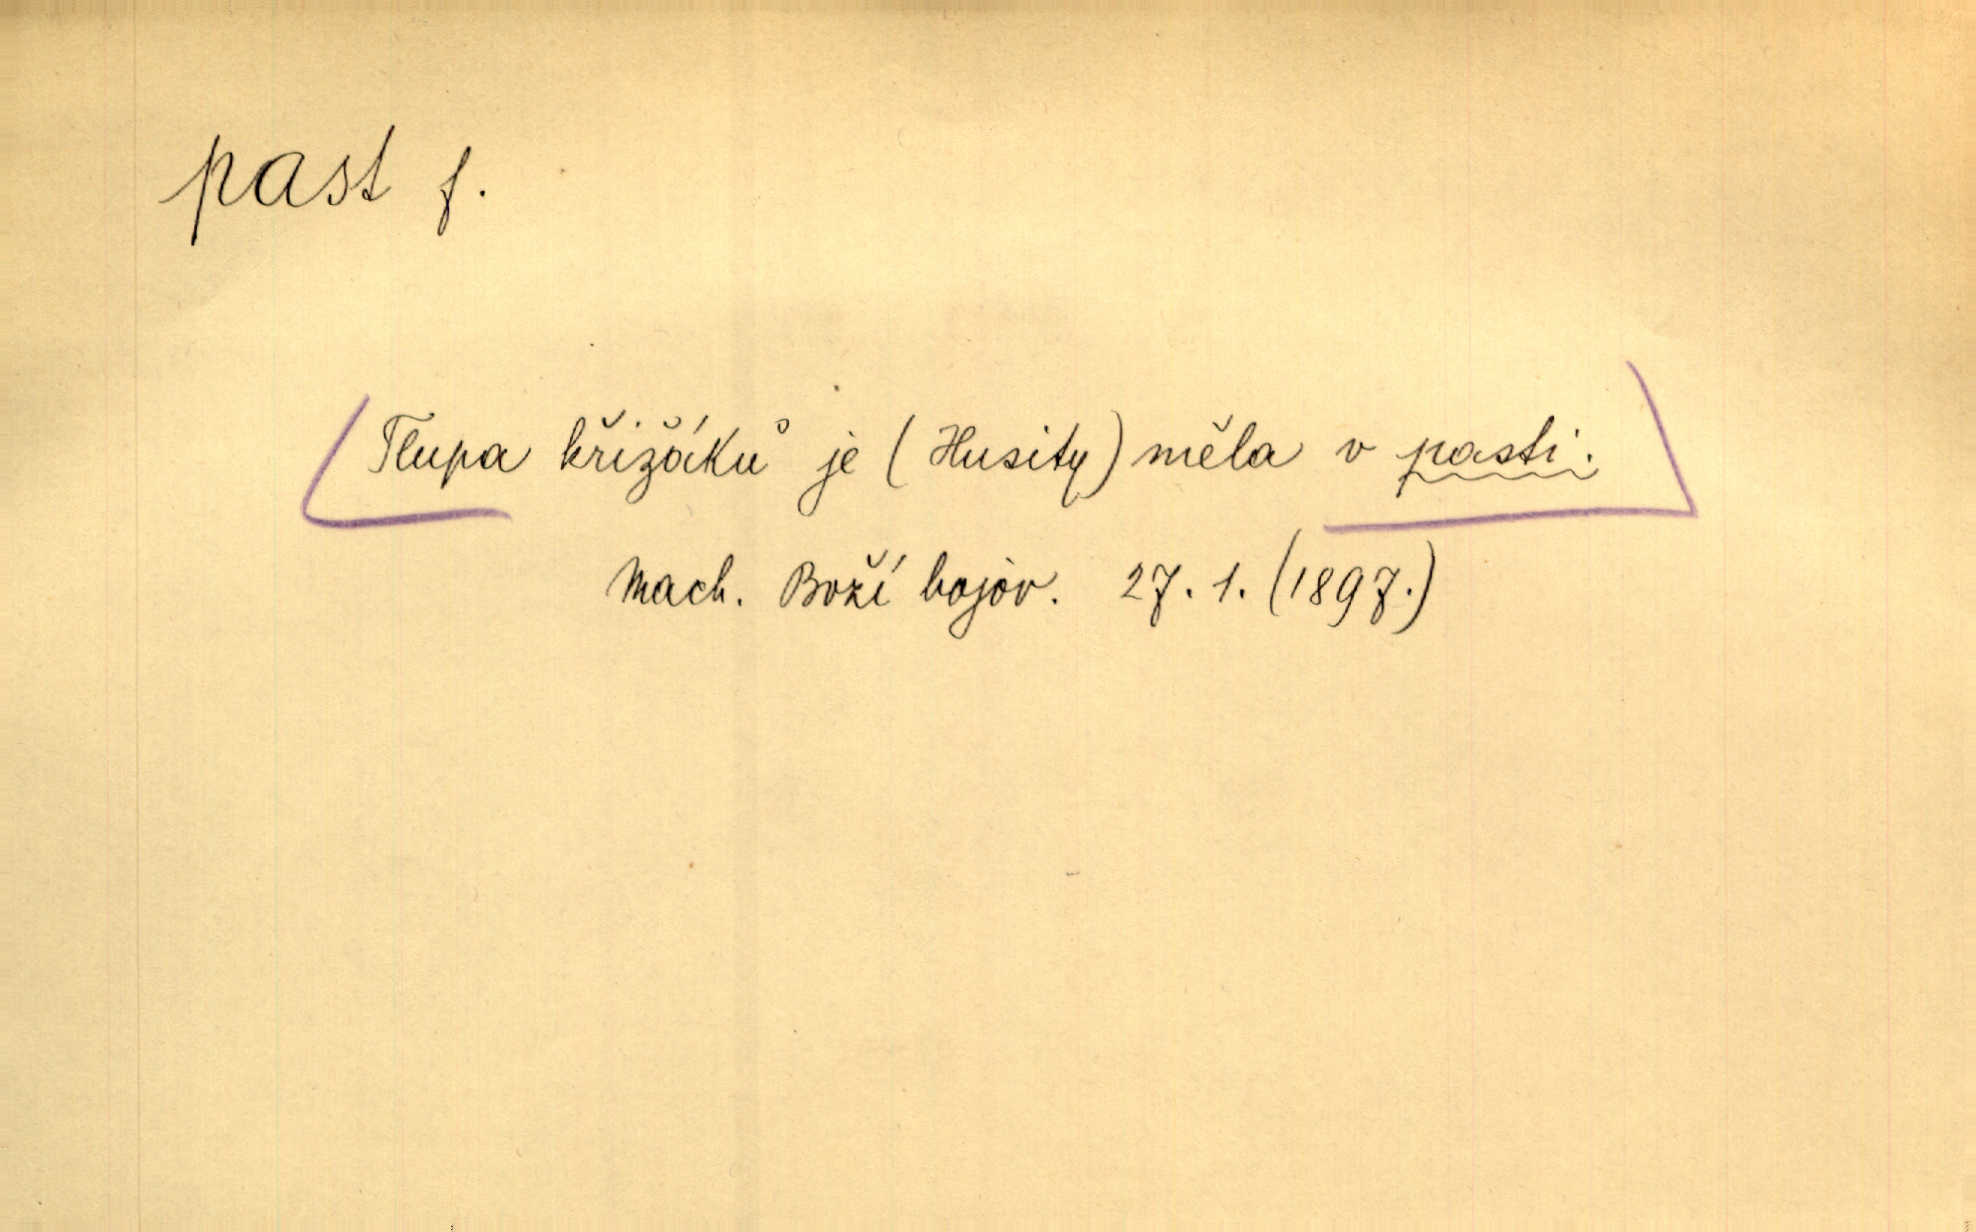 past f.
Tlupa křižáků je (Husity) měla v pasti.
Mach. Boží bojov. 27. 1. (1897.)